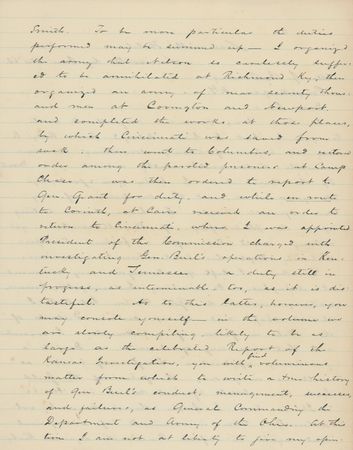 Smith. To be more particular the duties
performed may be summed up — I organized
the army that Nelson so carelessly suffer-
ed to be annihilated at Richmond Ky; then
organized an army of near seventy thous-
and men at Covington and Newport
and completed the works at those places,
by which Cincinnati was saved from
sack; then went to Columbus, and restored
order among the paroled prisoners at Camp
Chase was then ordered to report to
Gen Grant for duty, and while en route
to Corinth, at Cairo received an order to
return to Cincinnati, where I was appointed
President of the Commission charged with
investigating Gen. Buel's operations in Ken-
tucky and Tennessee a duty still in
progress, as interminable too, as it is dis-
tasteful. As to this latter, however, you
may console yourself — in the volume we
are slowly compiling, likely to be as
large as the celebrated Report of the
Kansas Investigation, you will find voluminous
matter from which to write a true history
of Gen Buel's conduct, management, successes,
and failures, as General Commanding the
Department and Army of the Ohio. At this
time I am not at liberty to give my opin-